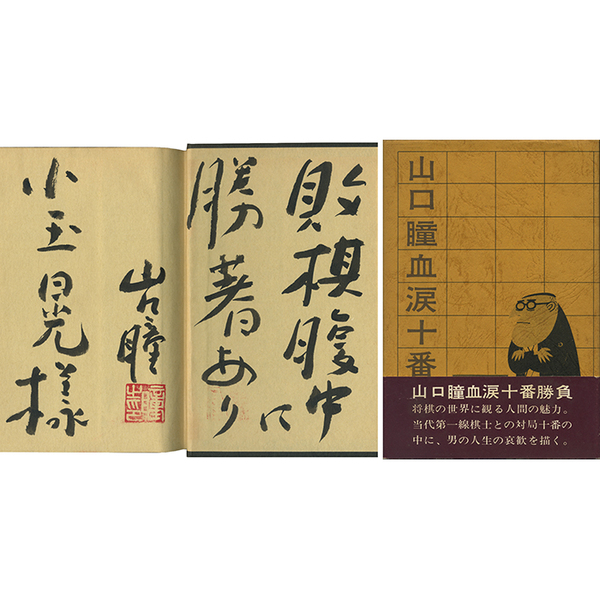 敗棋腹中に
勝著あり
山口瞳
小玉晄様
山口瞳血涙十番
山口瞳血涙十番勝負
将棋の世界に観る人間の魅力。
当代第一線棋士との対局十番の
中に、男の人生の哀歓を描く。